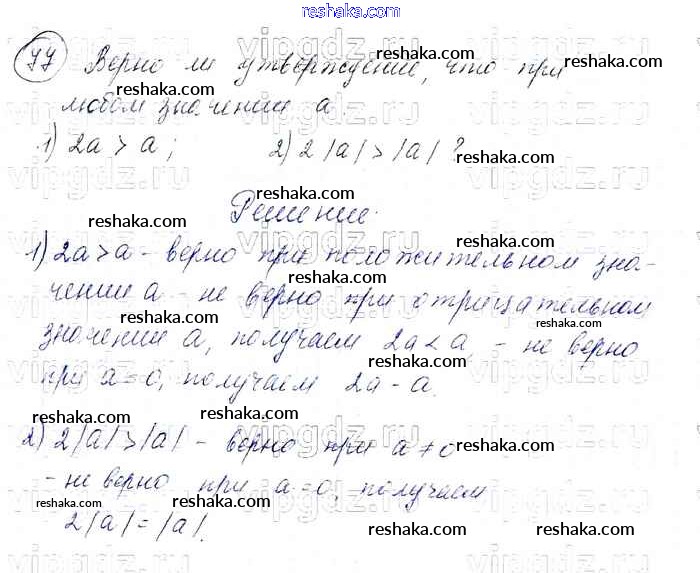 reshaka.com
77 Верно ли утверждение, что при
любом значении a
1) 2a > a; 2) 2|a| > |a| ?
Решение.
1) 2a > a - верно при положительном зна-
чении a - не верно при отрицательном
значении a, получаем 2a < a, - не верно
при a = 0, получаем 2a - a.
2) 2|a| > |a| - верно при a ≠ 0
- не верно при a = 0, получаем
2|a| = |a|.